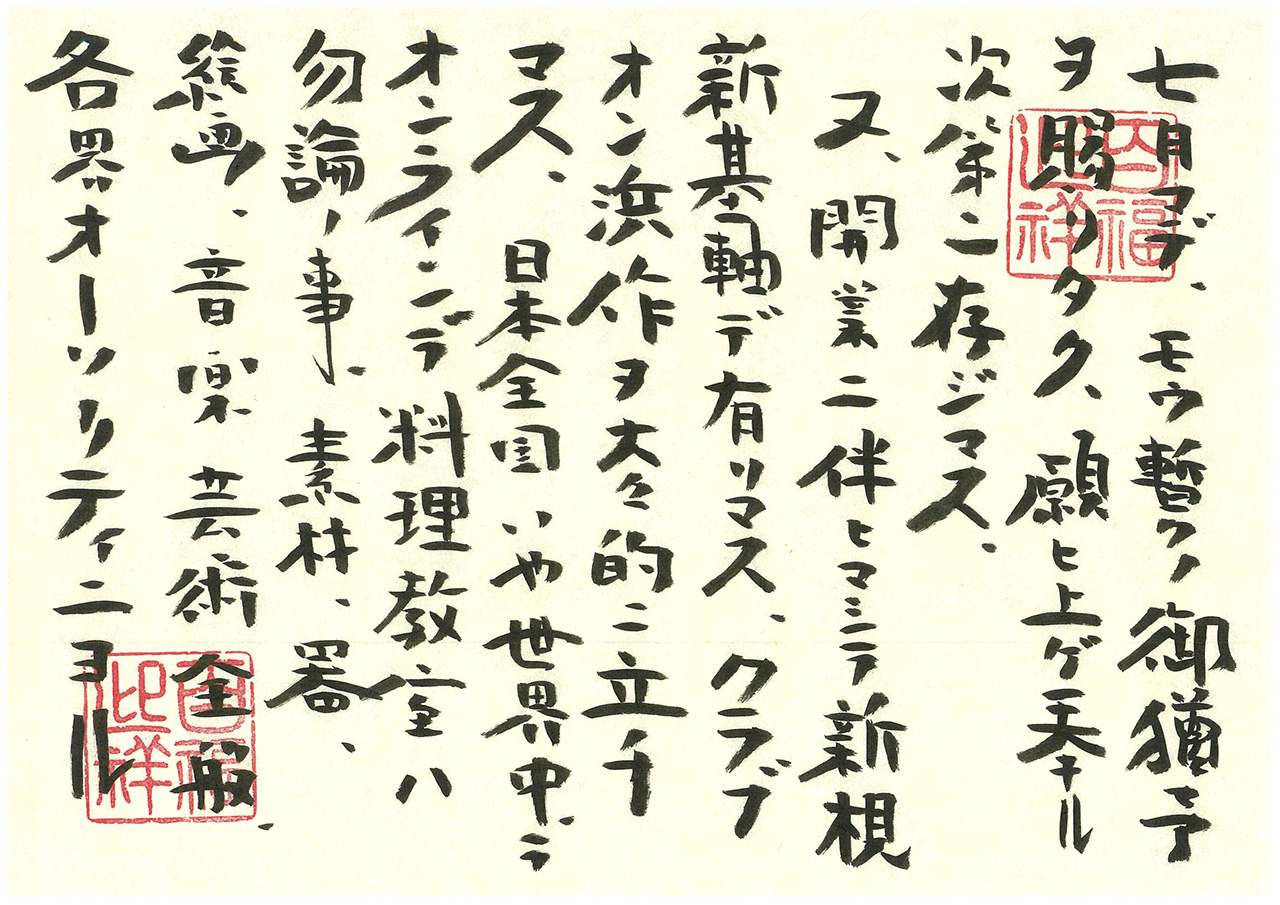 七月マデ、モウ暫クノ御猶予
ヲ賜リタク、願ヒ上ゲ奉ル
次第ニ存ジマス、
又、開業ニ伴ヒマシテ新規
新基軸デ有リマス、クラブ
オン浜作ヲ大々的ニ立チ
マス、日本全国いや世界中、ラ
オンラインデ料理教室ハ
勿論ノ事、素材、器、
絵画、音楽芸術全般、
各界オーソリティニヨル
百福
迎祥
百福
迎祥